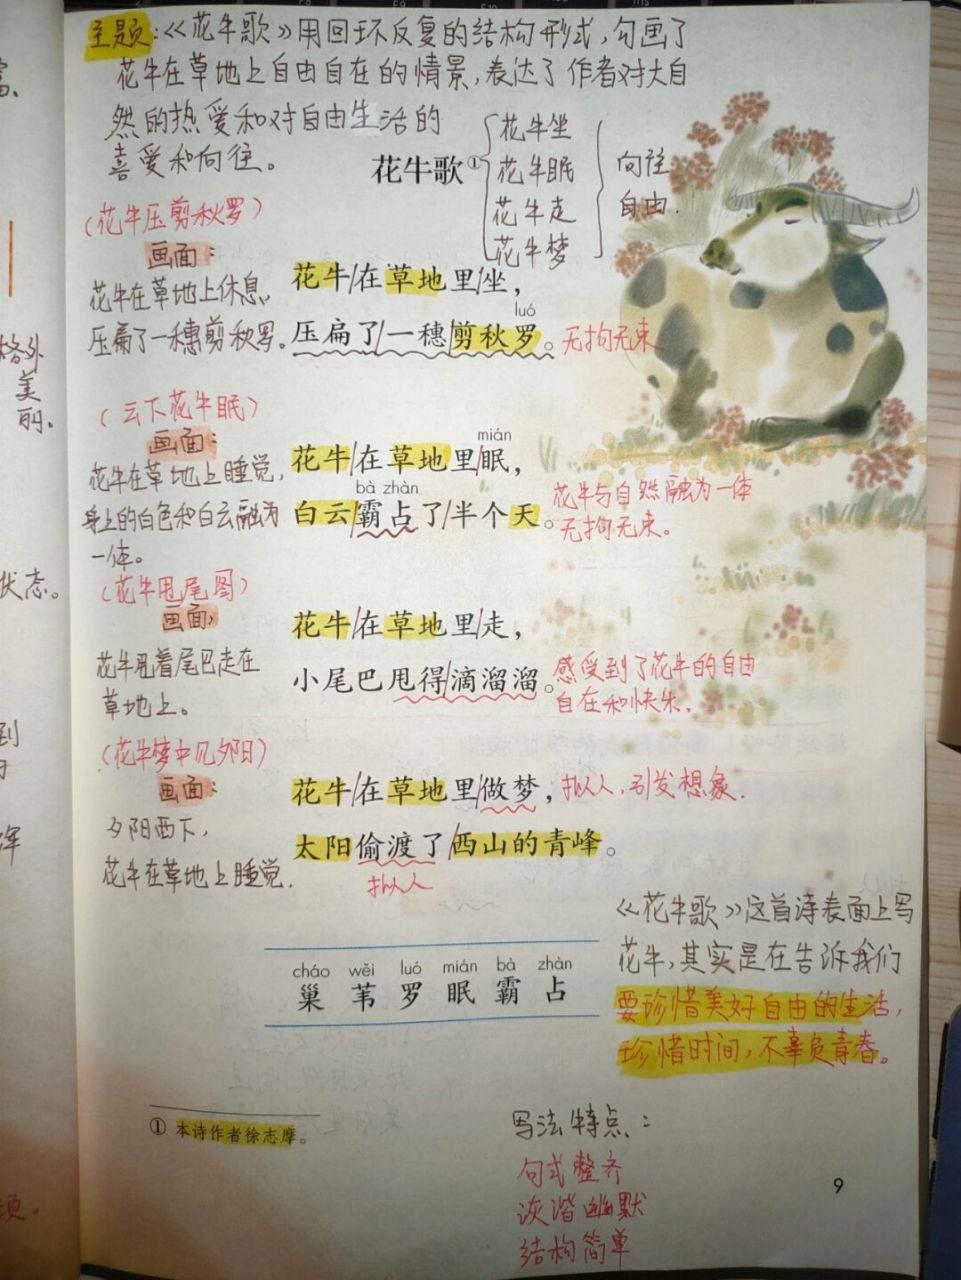 主题:《花牛歌》用回环反复的结构形式,勾画了
花牛在草地上自由自在的情景,表达了作者对大自
然的热爱和对自由生活的
喜爱和向往。
花牛歌①
花牛坐
花牛眠
花牛走
花牛梦
向往
自由.
(花牛压剪秋罗)
画面:
花牛在草地上休息,
压扁了一穗剪秋罗。
花牛/在草地里/坐,
luó
压扁了/一穗/剪秋罗。
无拘无束
(云下花牛眠)
画面:
花牛在草地上睡觉,
身上的白色和白云融为
一体。
mián
花牛/在草地里/眠,
bà zhàn
白云/霸占了/半个天。
花牛与自然融为一体
无拘无束。
(花牛甩尾图)
画面:
花牛甩着尾巴走在
草地上。
花牛/在草地里/走,
小尾巴甩得/滴溜溜。
感受到了花牛的自由
自在和快乐.
(花牛梦中见夕阳)
画面:
夕阳西下,
花牛在草地上睡觉.
花牛/在草地里/做梦,
拟人,引发想象.
太阳偷渡了/西山的青峰。
拟人
cháo wěi luó mián bà zhàn
巢 苇 罗 眠 霸 占
《花牛歌》这首诗表面上写
花牛,其实是在告诉我们
要珍惜美好自由的生活,
珍惜时间,不辜负青春。
① 本诗作者徐志摩。
写法特点:
句式整齐
诙谐幽默
结构简单
9
格外
美
丽.
状态。
到